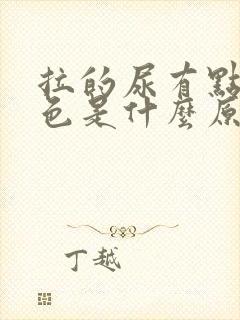 拉的尿有點
色是什麼原
丁越